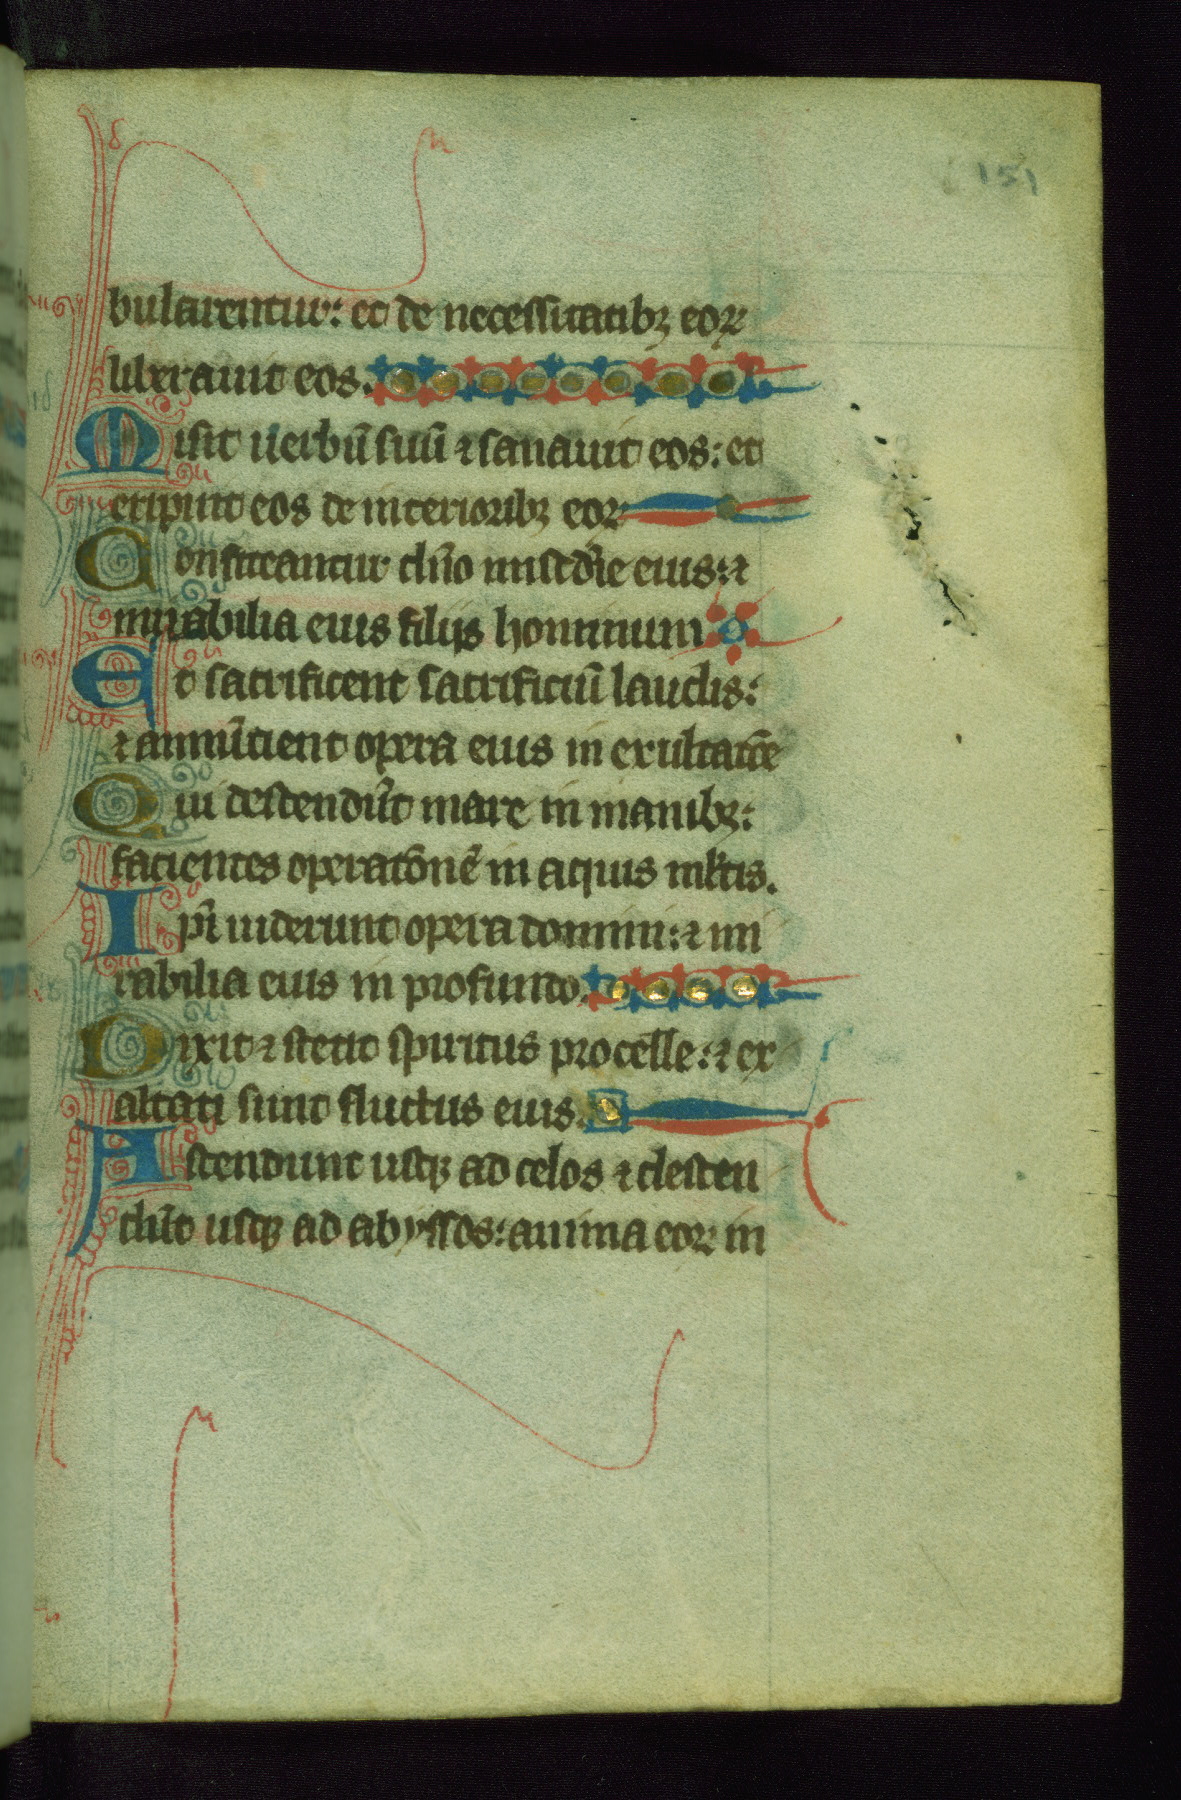 151
bularentur: et de necessitatibꝫ eoꝝ
liberauit eos.
Misit uerbū suū ⁊ sanauit eos: et
eripuit eos de interioribꝫ eoꝝ
Confiteantur dn̄o misc̄die eius: ⁊
mirabilia eius filijs hominum
Et sacrificent sacrificiū laudis:
⁊ annūcient opera eius in exultatōe
Qui descendūt mare in nauibꝫ:
facientes operatōnē in aquis ml̄tis.
Ip̄i uiderunt opera domini: ⁊ mi
rabilia eius in profundo.
Dixit ⁊ stetit spiritus procelle: ⁊ ex
altati sunt fluctus eius.
Ascendunt usqꝫ ad celos ⁊ descen
dūt usqꝫ ad abyssos: anima eoꝝ in